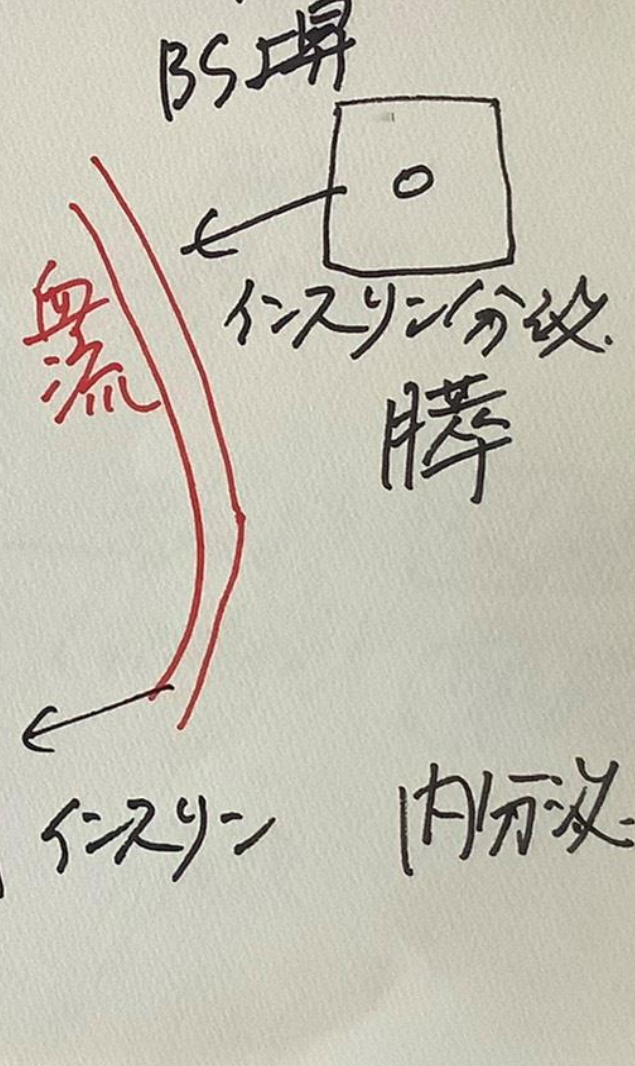 BS上昇
血流
インスリン分泌.
膵
インスリン
内分泌.